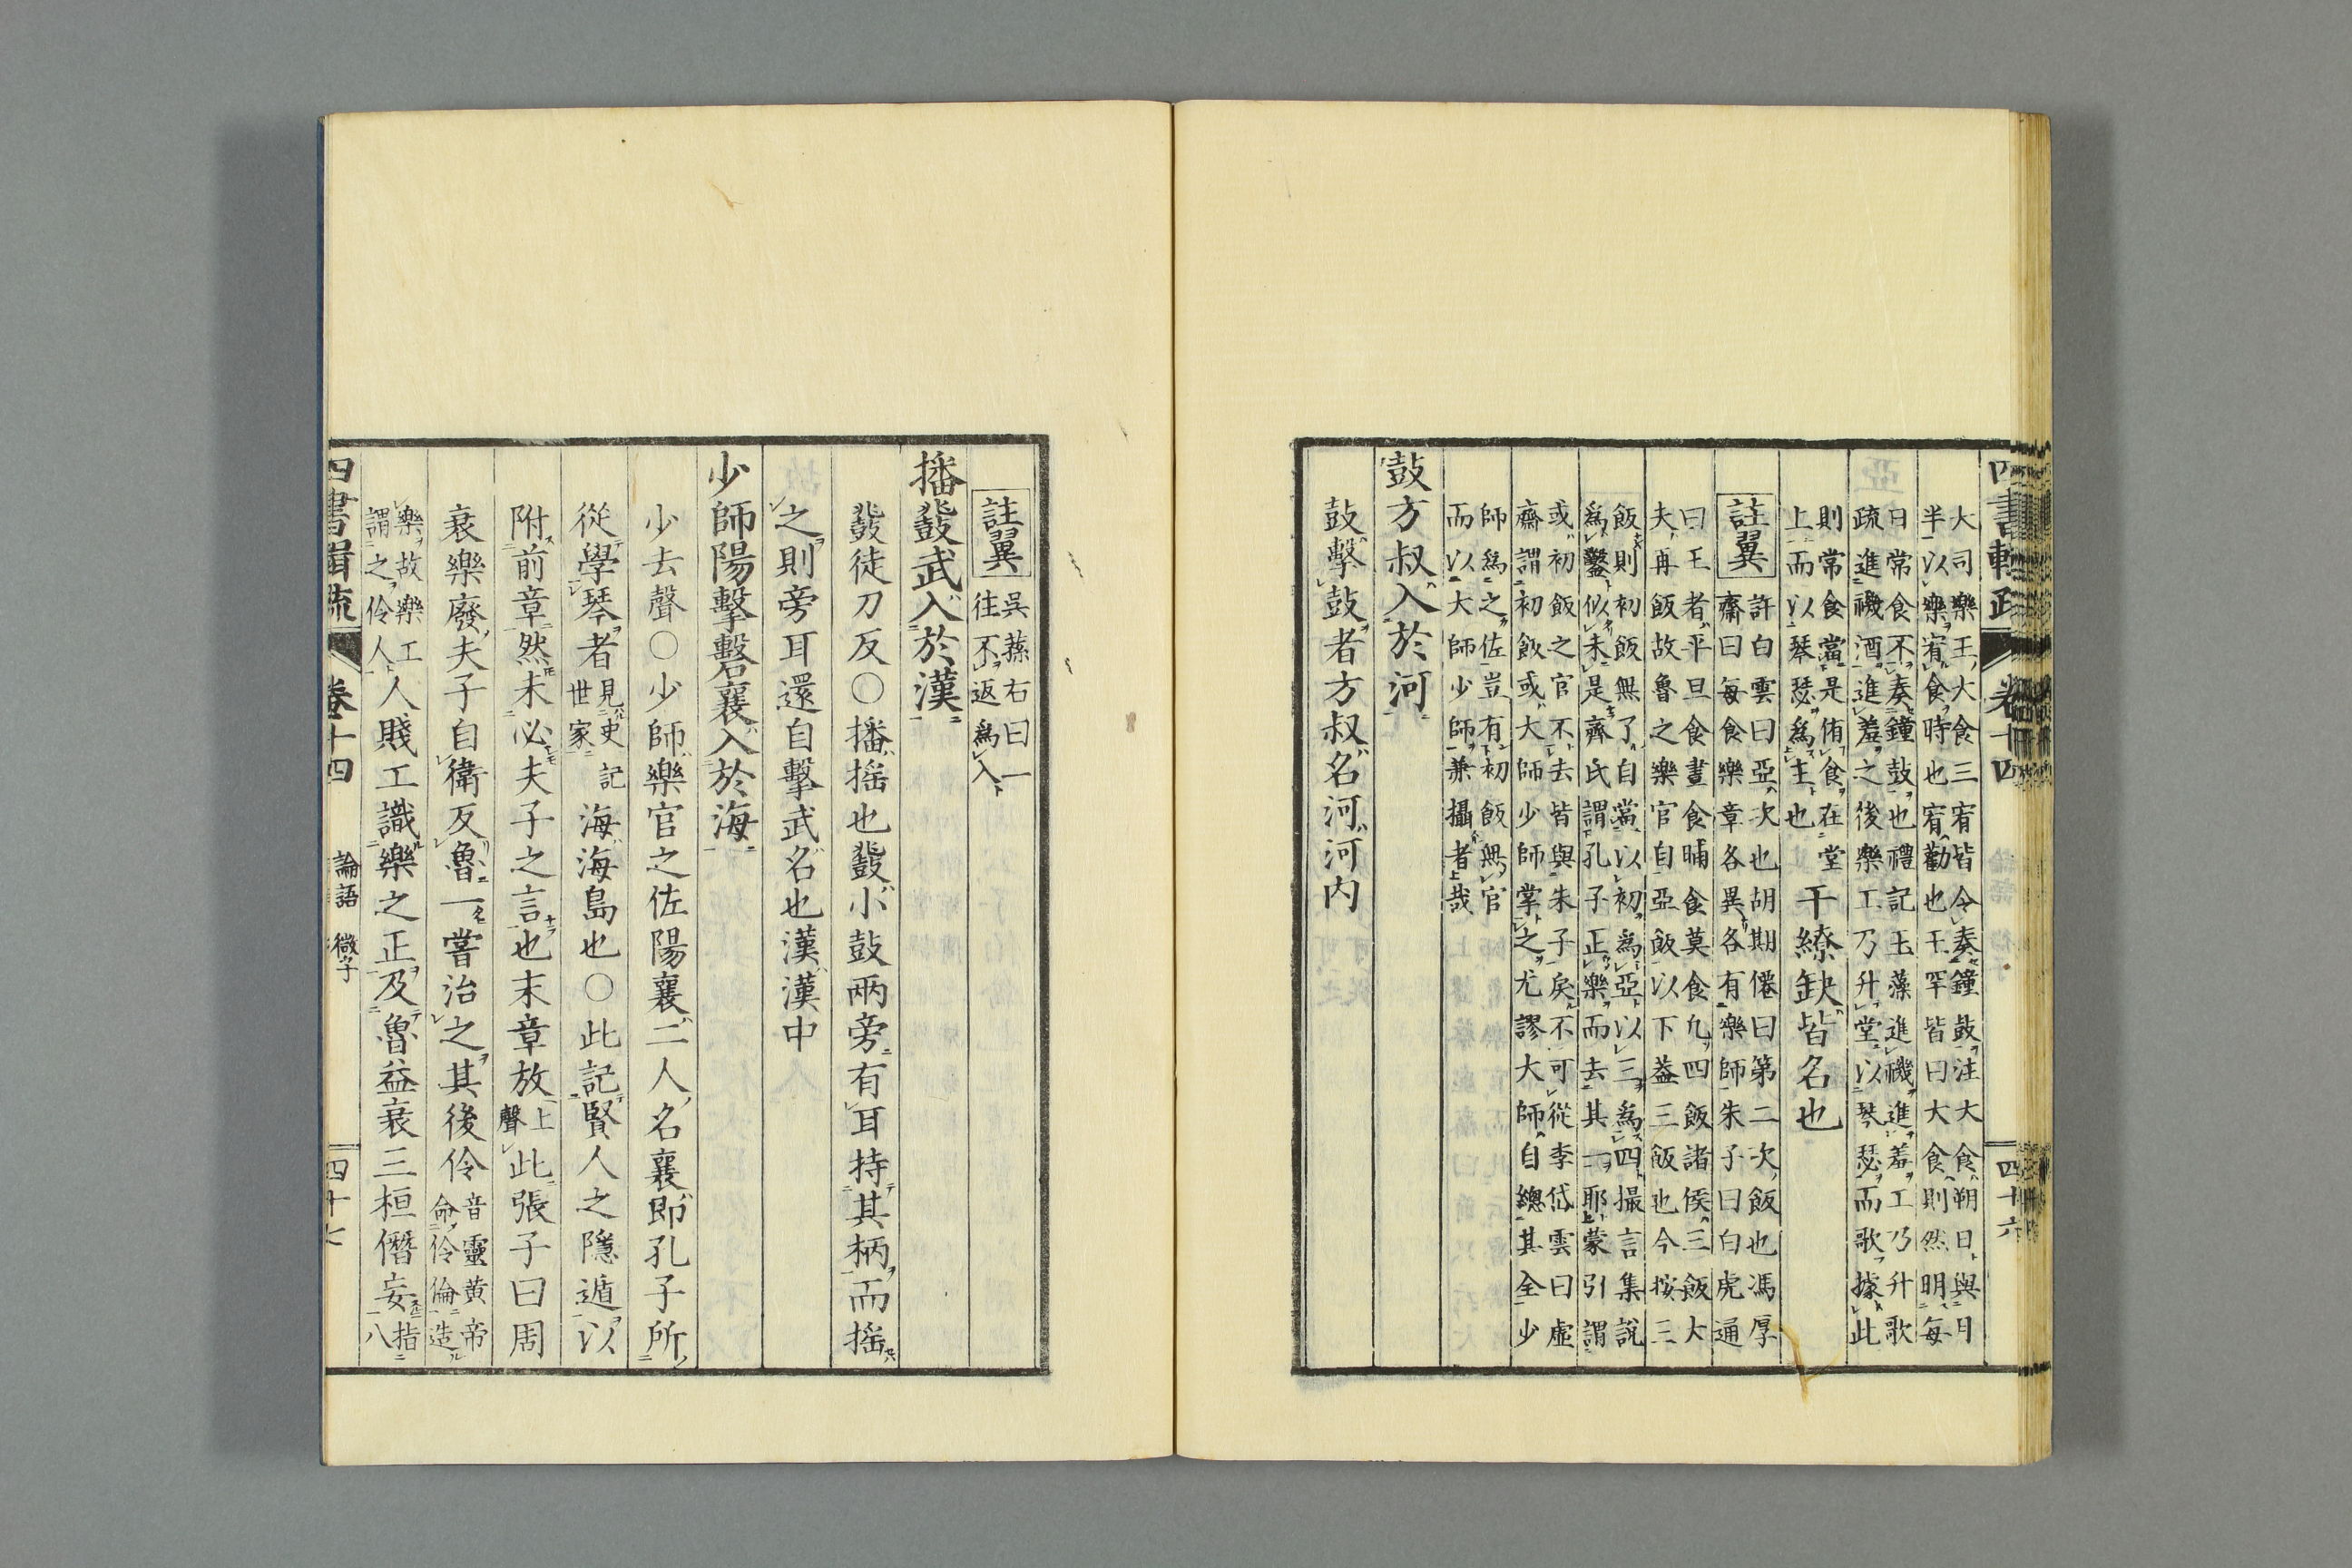 四書輯疏 卷十四 四十六
大司樂王大食三宥皆令奏鐘鼓注大食朔日與月
半以樂宥食時也宥勸也王罕皆曰大食則然明每
日常食不奏鐘鼓也禮記玉藻進禨進羞工乃升歌
疏進禨酒進羞之後樂工乃升堂以琴瑟而歌據此
則常食當是侑食在堂
上而以琴瑟為主也
干繚缺皆名也
註翼
許白雲曰亞次也胡期僊曰第二次飯也馮厚
齋曰每食樂章各異各有樂師朱子曰白虎通
曰王者平旦食晝食晡食莫食凡四飯諸侯三飯大
夫再飯故魯之樂官自亞飯以下蓋三飯也今按三
飯則初飯無了自當以初為亞以三為四撮言集說
為鑿似未是齊氏謂孔子正樂而去其一耶蒙引謂
或初飯之官不去皆與朱子戾不可從李岱雲曰虛
齋謂初飯或大師少師掌之尤謬大師自總其全少
師為之佐豈有初飯無官
而以大師少師兼攝者哉
鼓方叔入於河
鼓擊鼓者方叔名河河內
註翼
吳蓀右曰一
往不返為入
播鼗武入於漢
鼗徒刀反○播搖也鼗小鼓兩旁有耳持其柄而搖
之則旁耳還自擊武名也漢漢中
少師陽擊磬襄入於海
少去聲○少師樂官之佐陽襄二人名襄即孔子所
從學琴者
見史記
世家
海海島也○此記賢人之隱遁以
附前章然未必夫子之言也末章放
上
聲
此張子曰周
衰樂廢夫子自衛反魯一嘗治之其後伶
音靈黃帝
命伶倫造
樂故樂工
謂之伶人
人賤工識樂之正及魯益衰三桓僭妄
指
八
四書輯疏 卷十四 論語 微子 四十七